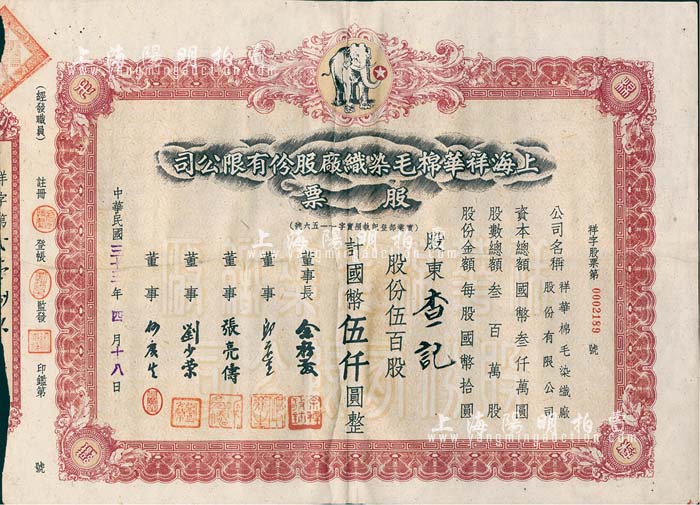 上海陽明拍賣
yangmingauction.com
上海祥華棉毛染織廠股份有限公司
股票
(實業部登記執照實字一一五六號)
祥字股票第 0002189 號
公司名稱 祥華棉毛染織廠股份有限公司
資本總額 國幣叁仟萬圓
股數總額 叁百萬股
股份金額 每股國幣拾圓
股東 查一記
股份伍百股
計國幣伍仟圓整
董事長
董事
董事 張亮儔
董事 劉少榮
董事
中華民國三十三年四月十八日
(經發職員) 註冊 登帳 監發 印鑑第 號
祥字第
上海陽明拍賣
yangmingauction.com
上海陽明拍賣
yangmingauction.com